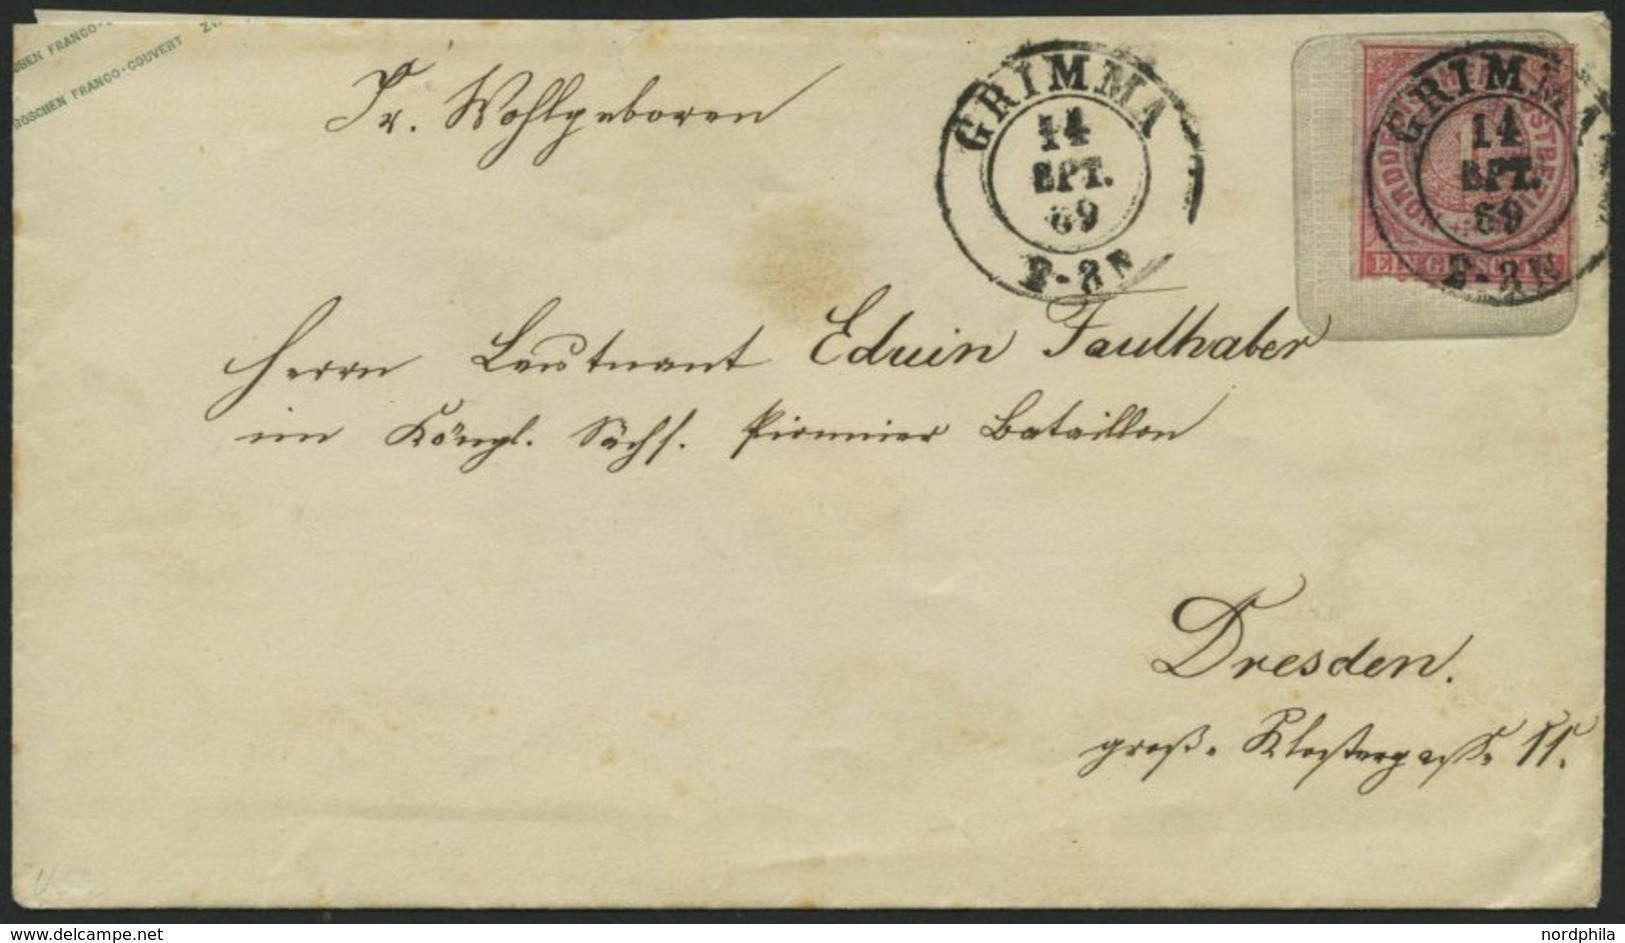 CHEN FRANCO-
ROSCHEN FRANCO-COUVERT
Sr. Wohlgeboren
GRIMMA
14
SPT.
69
GRIMMA
14
SPT.
69
NORDD
EIN GROSCH
Herrn Leutnant Eduin Faulhaber
im Köngl. Sächs. Pionnier Bataillon
Dresden.
große Klostergasse 11.
www.delcampe.net
nordphila